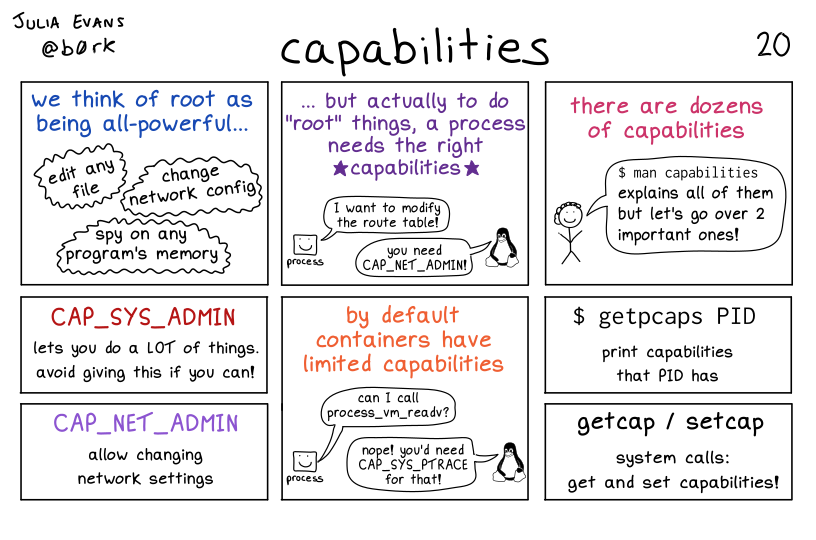 JULIA EVANS
@b0rk
capabilities
20
we think of root as
being all-powerful...
edit any
file
change
network config
spy on any
program's memory
... but actually to do
"root" things, a process
needs the right
★capabilities★
I want to modify
the route table!
process
you need
CAP_NET_ADMIN!
there are dozens
of capabilities
$ man capabilities
explains all of them
but let's go over 2
important ones!
CAP_SYS_ADMIN
lets you do a LOT of things.
avoid giving this if you can!
CAP_NET_ADMIN
allow changing
network settings
by default
containers have
limited capabilities
can I call
process_vm_readv?
process
nope! you'd need
CAP_SYS_PTRACE
for that!
$ getpcaps PID
print capabilities
that PID has
getcap / setcap
system calls:
get and set capabilities!